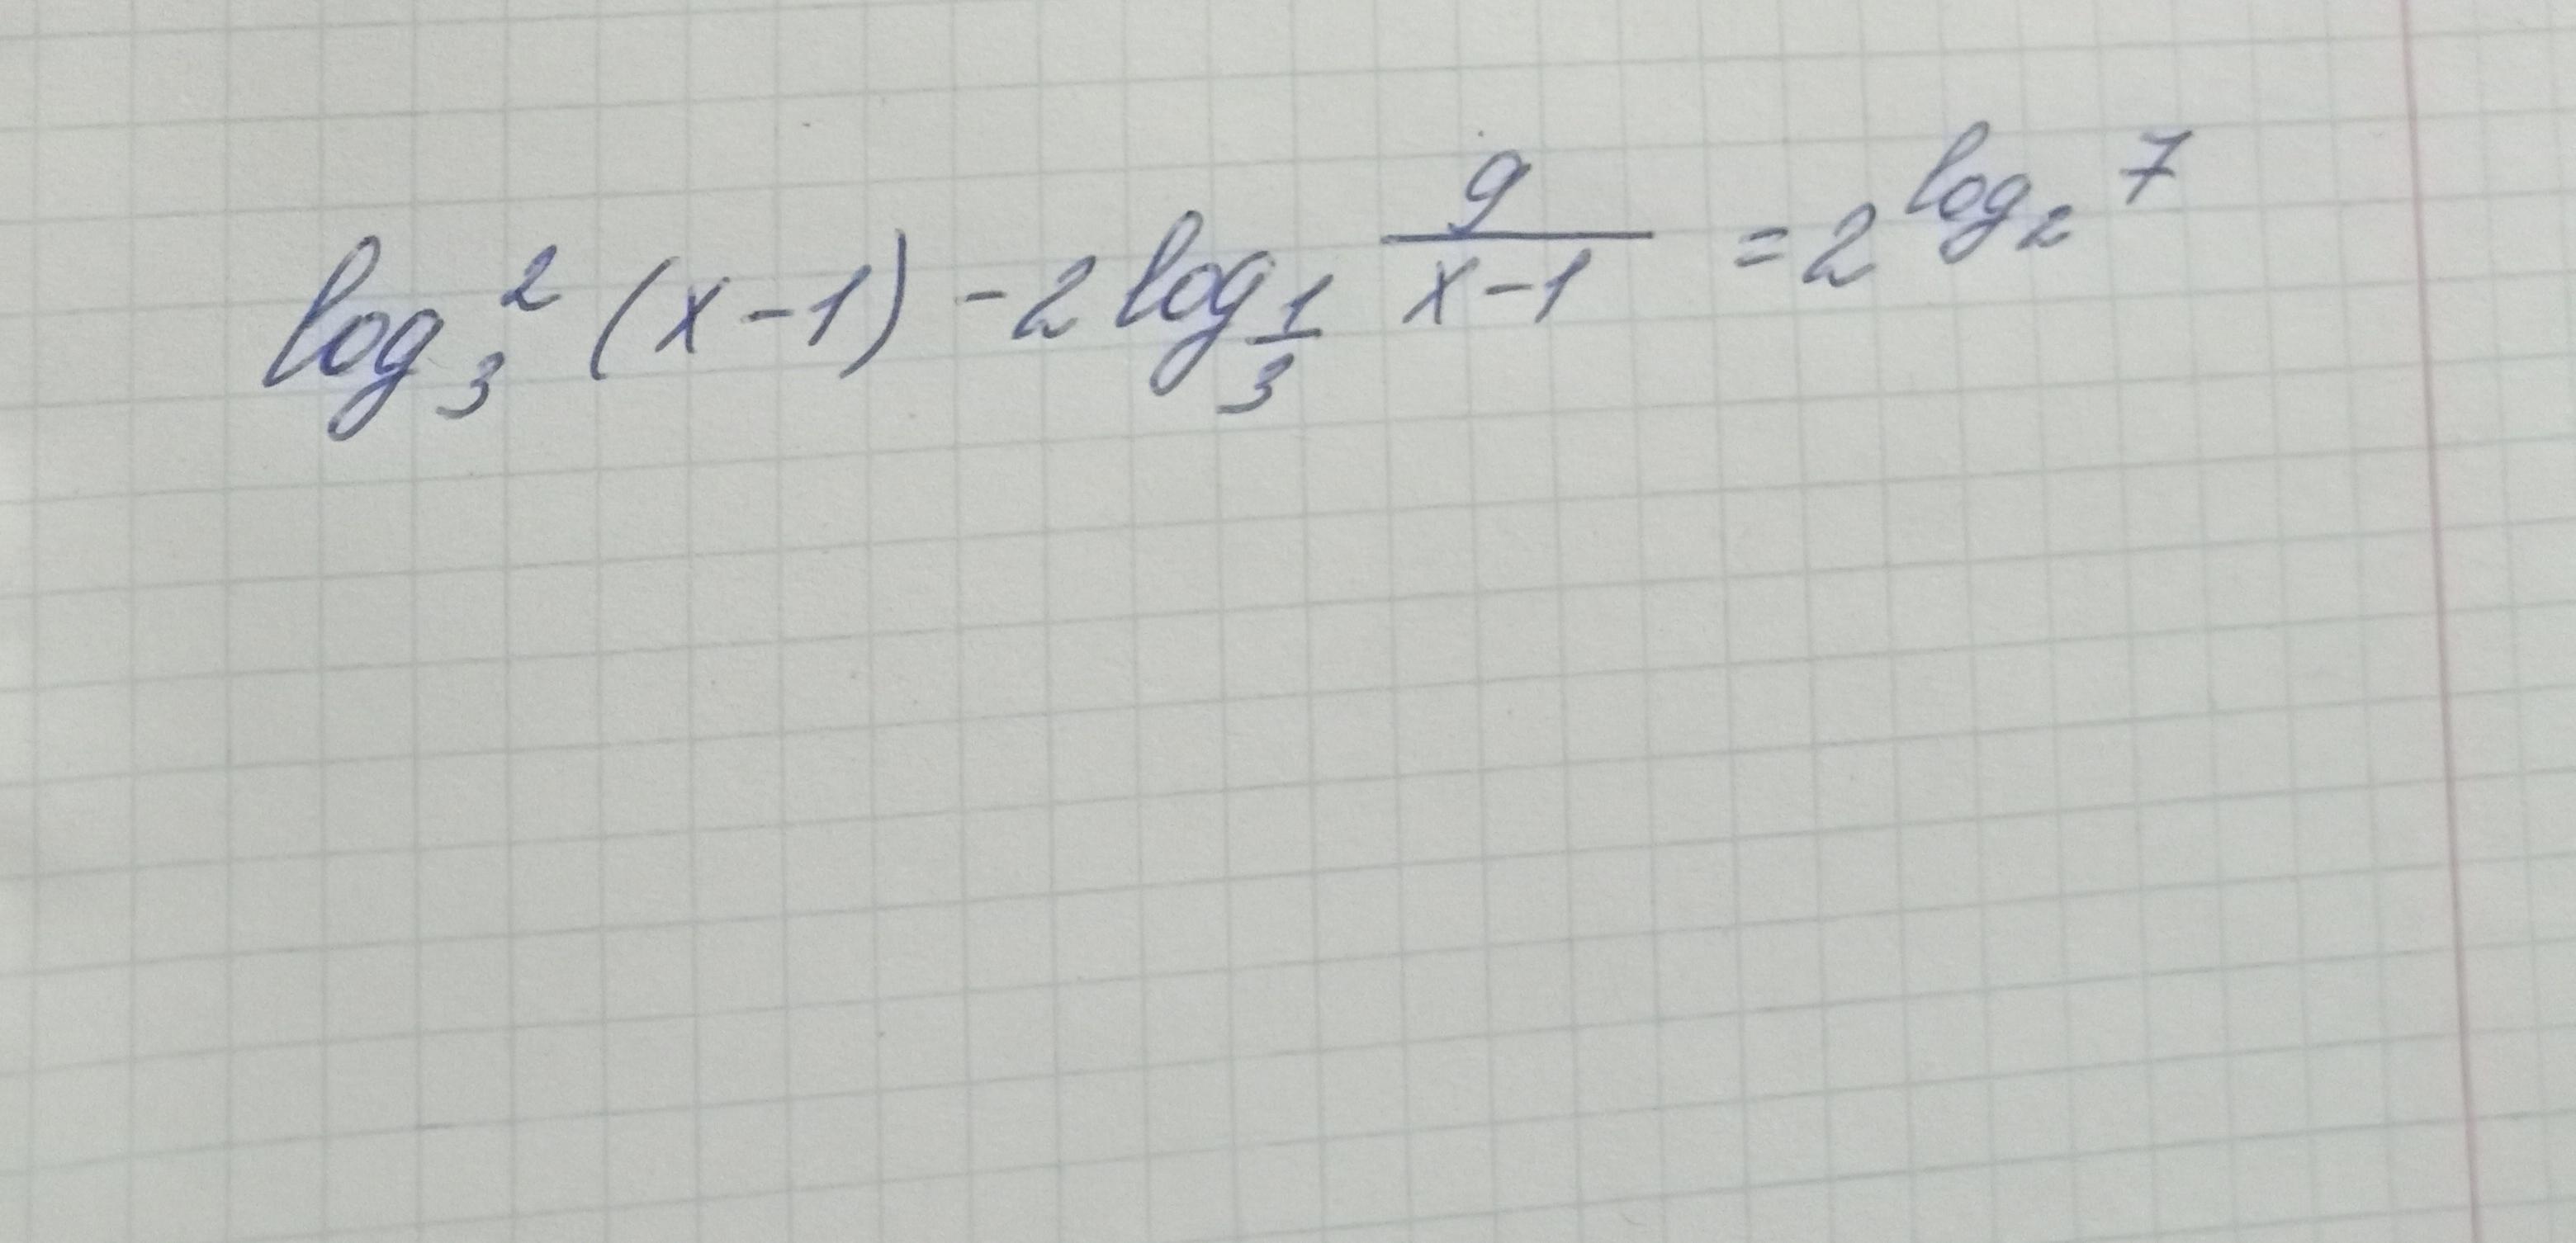 log₃²(x-1) - 2log_{1/3} 9/(x-1) = 2^{log₂7}